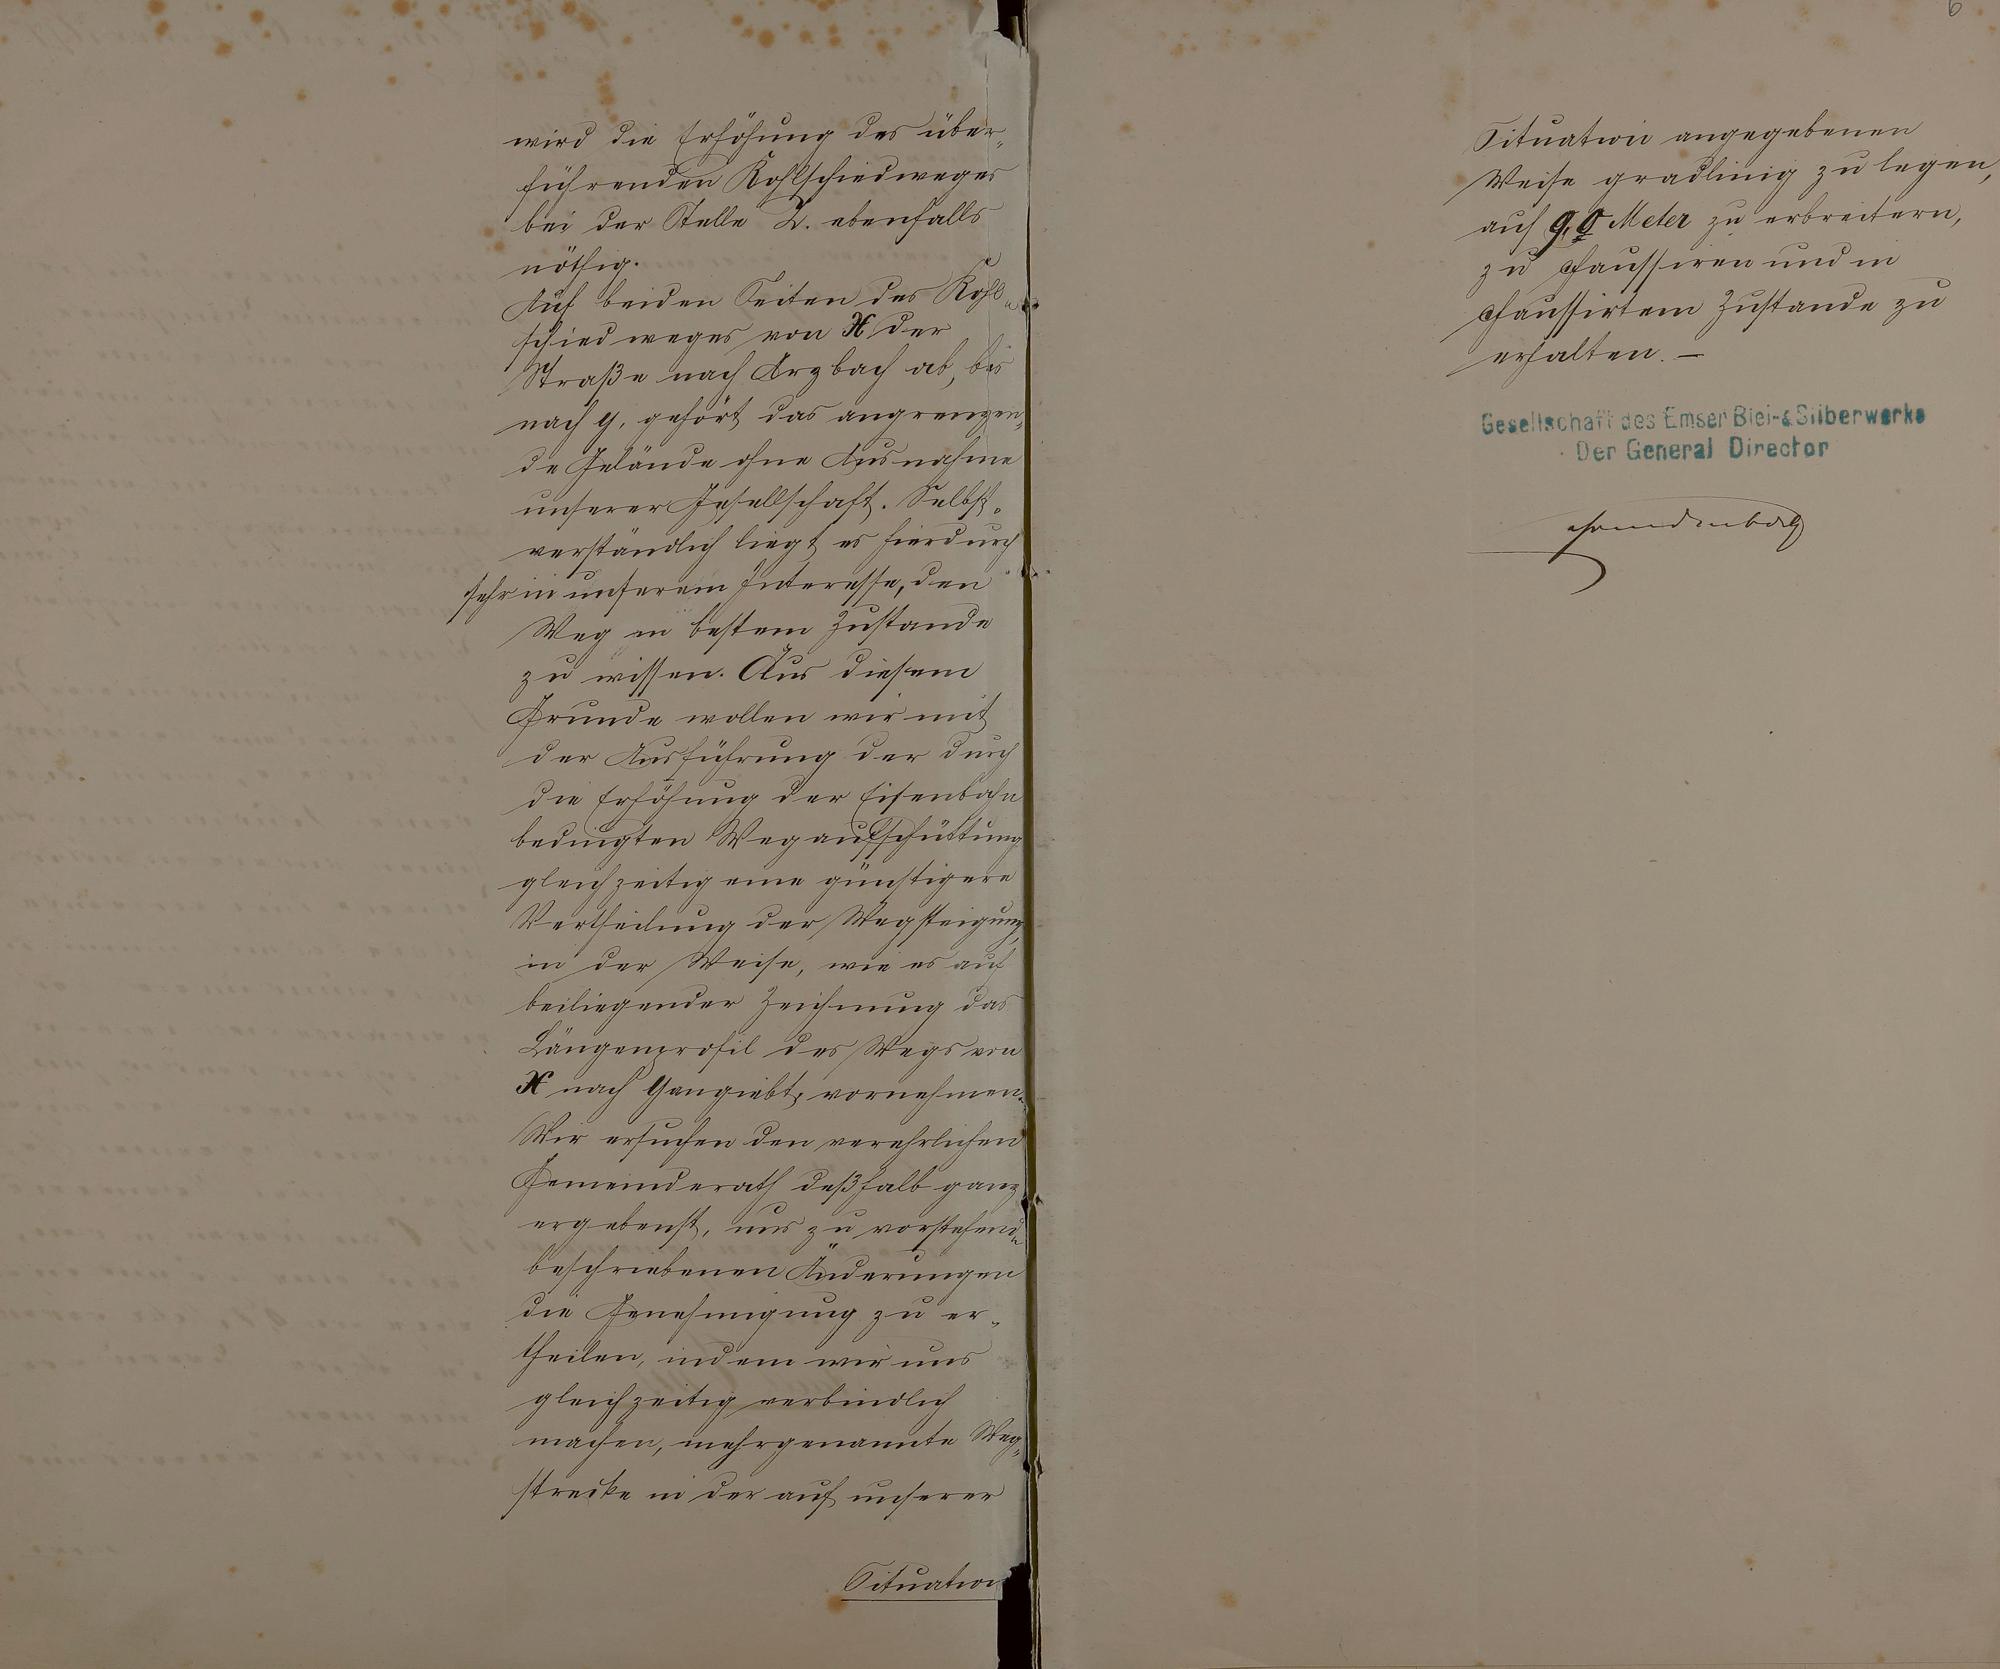 wird die Erhöhung des über-
führenden Kohlschiedweges
bei der Stelle Z. ebenfalls
nöthig.
Auf beiden Seiten des Kohl-
schiedweges von X der
Straße nach Arzbach ab, bis
nach Y, gehört das angrenzen-
de Gelände ohne Ausnahme
unserer Gesellschaft. Selbst-
verständlich liegt es hierdurch
sehr in unserem Interesse, den
Weg in bestem Zustande
zu wissen. Aus diesem
Grunde wollen wir mit
der Ausführung der durch
die Erhöhung der Eisenbahn
bedingten Wegaufschüttung
gleichzeitig eine günstigere
Vertheilung der Wegsteigung,
in der Weise, wie es auf
beiliegender Zeichnung das
Längenprofil des Wegs von
X nach Y angiebt, vornehmen.
Wir ersuchen den verehrlichen
Gemeinderath deßhalb ganz
ergebenst, uns zu vorstehend
beschriebenen Änderungen
die Genehmigung zu er-
theilen, indem wir uns
gleichzeitig verbindlich
machen, mehrgenannte Weg-
strecke in der auf unserer
Situation
6
Situation angegebenen
Weise gradlinig zu legen,
auf 9,0 Meter zu erbreitern,
zu chaussiren und in
chaussirtem Zustande zu
erhalten. —
Gesellschaft des Emser Blei- & Silberwerks
Der General Director